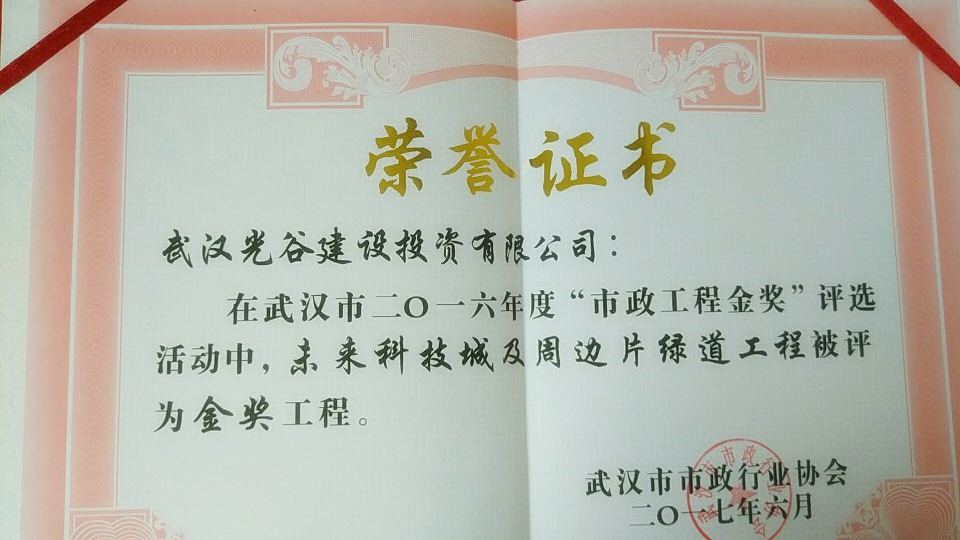 荣誉证书
武汉光谷建设投资有限公司：
在武汉市二〇一六年度“市政工程金奖”评选
活动中，未来科技城及周边片绿道工程被评
为金奖工程。
武汉市市政行业协会
二〇一七年六月
武汉市市政行业协会